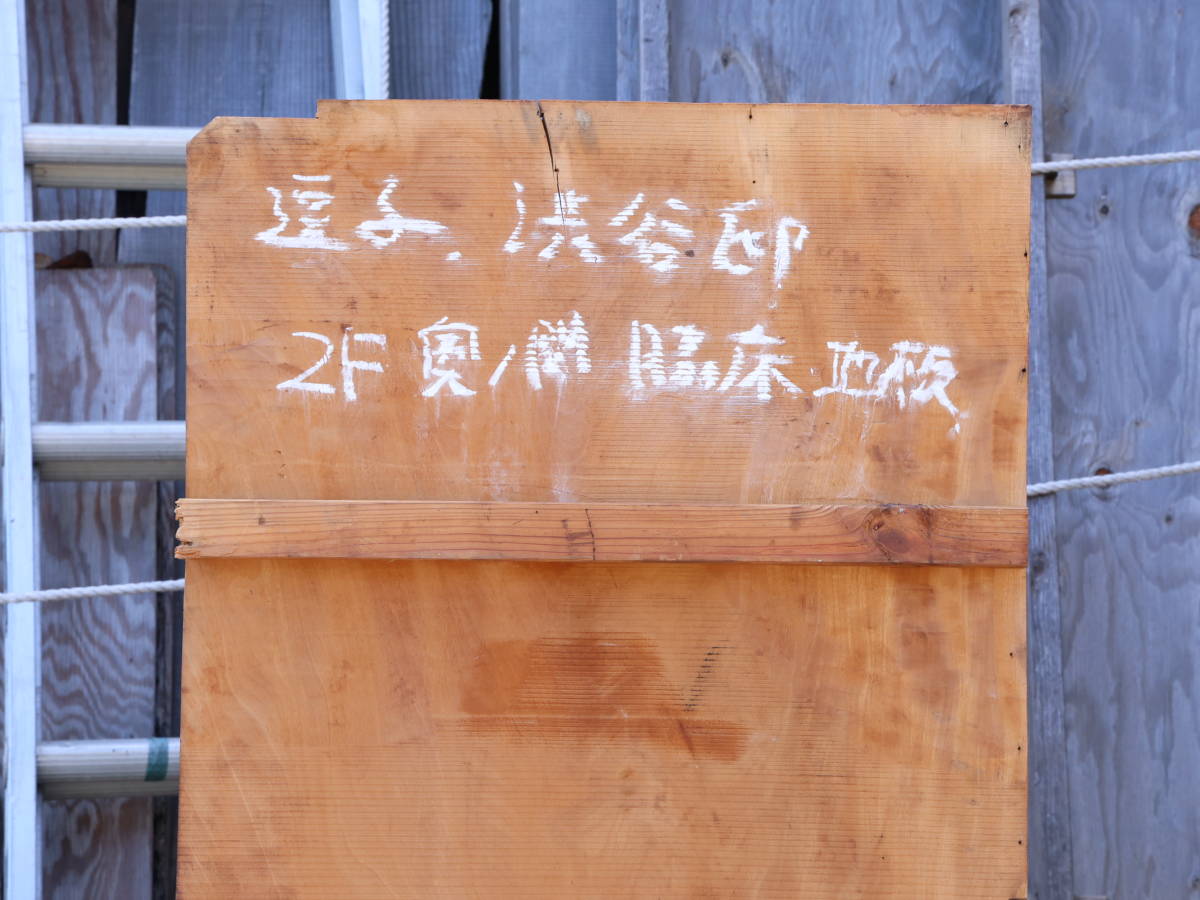 逗子、渋谷邸
2F奥ノ間 脇床 地板